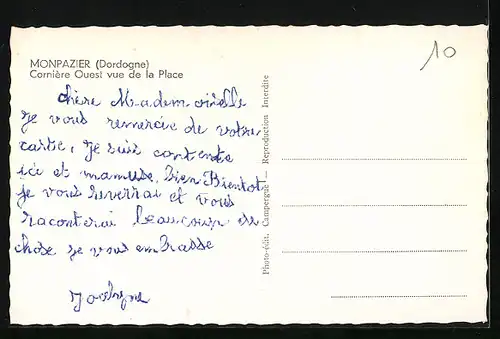 MONPAZIER (Dordogne)
Cornière Ouest vue de la Place
10
chère Mademoiselle
je vous remercie de votre
carte, je suis contente
ici et mamuse, Bien Bientot
je vous reverrai et vous
raconterai beaucoup de
chose je vous embrasse
Jocelyne
Photo-édit. Campergue — Reproduction Interdite